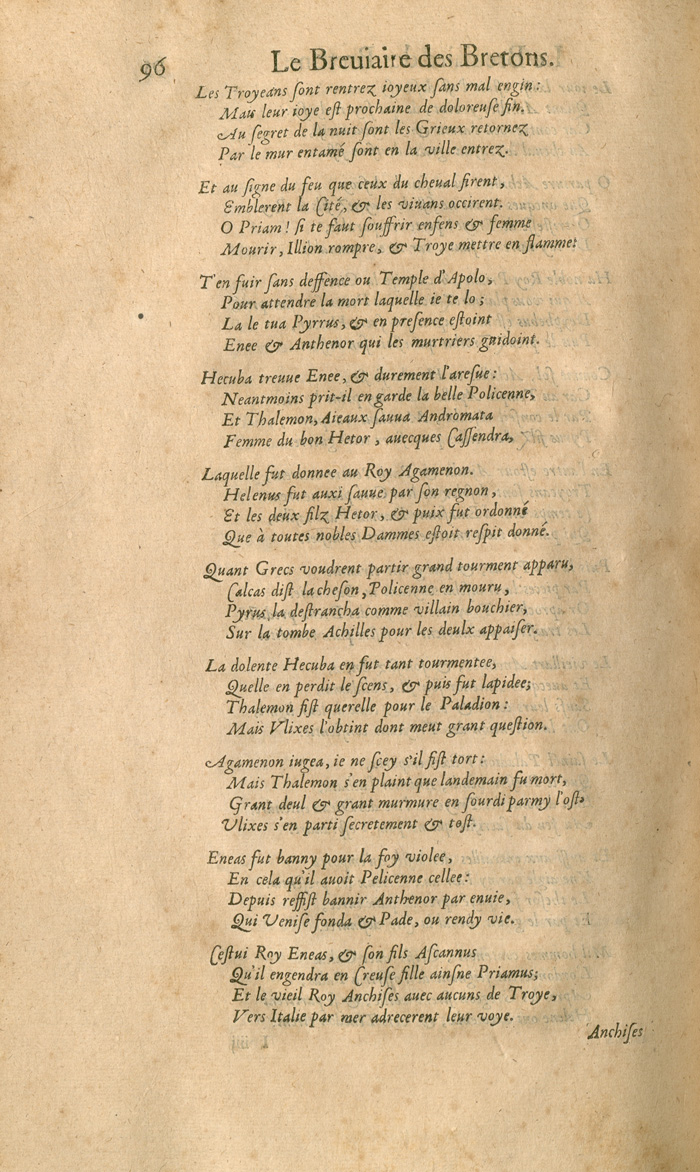 96 Le Breuiaire des Bretons.
Les Troyeans ſont rentrez ioyeux ſans mal engin:
Mau leur ioye eſt prochaine de doloreuſe fin.
Au ſegret de la nuit ſont les Grieux retornez
Par le mur entamé ſont en la ville entrez.
Et au ſigne du feu que ceux du cheual firent,
Emblerent la Cité, & les viuans occirent.
O Priam! ſi te faut ſouffrir enfens & femme
Mourir, Illion rompre, & Troye mettre en flamme!
T'en fuir ſans deffence ou Temple d'Apolo,
Pour attendre la mort laquelle ie te lo;
La le tua Pyrrus, & en preſence eſtoint
Enee & Anthenor qui les murtriers guidoint.
Hecuba treuue Enee, & durement l'areſue:
Neantmoins prit-il en garde la belle Policenne,
Et Thalemon, Aieaux ſauua Andromata
Femme du bon Hetor, auecques Caſſendra,
Laquelle fut donnee au Roy Agamenon.
Helenus fut auxi ſauue par ſon regnon,
Et les deux filz Hetor, & puix fut ordonné
Que à toutes nobles Dammes eſtoit reſpit donné.
Quant Grecs voudrent partir grand tourment apparu,
Calcas diſt la cheſon, Policenne en mouru,
Pyrus la deſtrancha comme villain bouchier,
Sur la tombe Achilles pour les deulx appaiſer.
La dolente Hecuba en fut tant tourmentee,
Quelle en perdit le ſcens, & puis fut lapidee;
Thalemon fiſt querelle pour le Paladion:
Mais Vlixes l'obtint dont meut grant queſtion.
Agamenon iugea, ie ne ſcey s'il fiſt tort:
Mais Thalemon s'en plaint que landemain fu mort,
Grant deul & grant murmure en ſourdi parmy l'oſt,
Vlixes s'en parti ſecretement & toſt.
Eneas fut banny pour la foy violee,
En cela qu'il auoit Pelicenne cellee:
Depuis reffiſt bannir Anthenor par enuie,
Qui Veniſe fonda & Pade, ou rendy vie.
Ceſtui Roy Eneas, & ſon fils Aſcannus
Qu'il engendra en Creuſe fille ainſne Priamus;
Et le vieil Roy Anchiſes auec aucuns de Troye,
Vers Italie par mer adrecerent leur voye.
Anchiſes